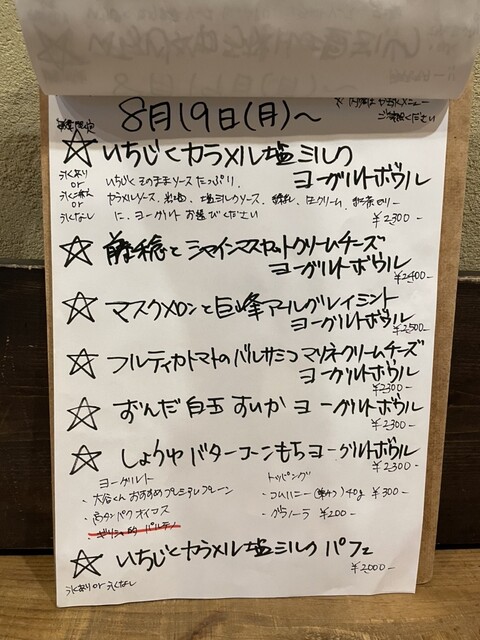 8月19日(月)～
ご確認ください
☆いちじくカラメル塩ミルク
ヨーグルトボウル
氷あり
or
氷なし
いちじくそのままソースたっぷり、
カラメルソース、塩ミルクソース、
に、ヨーグルトお選びください
¥2,300-
☆ シャインマスカットクリームチーズ
ヨーグルトボウル
¥2,400-
☆マスクメロンと巨峰アールグレイミント
ヨーグルトボウル
¥2,500-
☆フルティカトマトのバルサミコマリネクリームチーズ
ヨーグルトボウル
¥2,300-
☆ずんだ白玉すいかヨーグルトボウル
¥2,300-
☆しょうゆバターコーンもちヨーグルトボウル
¥2,300-
ヨーグルト
・大谷くんおすすめプレミアムプレーン
・高タンパクオイコス
・ギリシャ的 パルテノ
トッピング
・コムハニー 40g ¥300-
・グラノーラ ¥200-
☆いちじくカラメル塩ミルクパフェ
¥2,000-
氷ありor氷なし